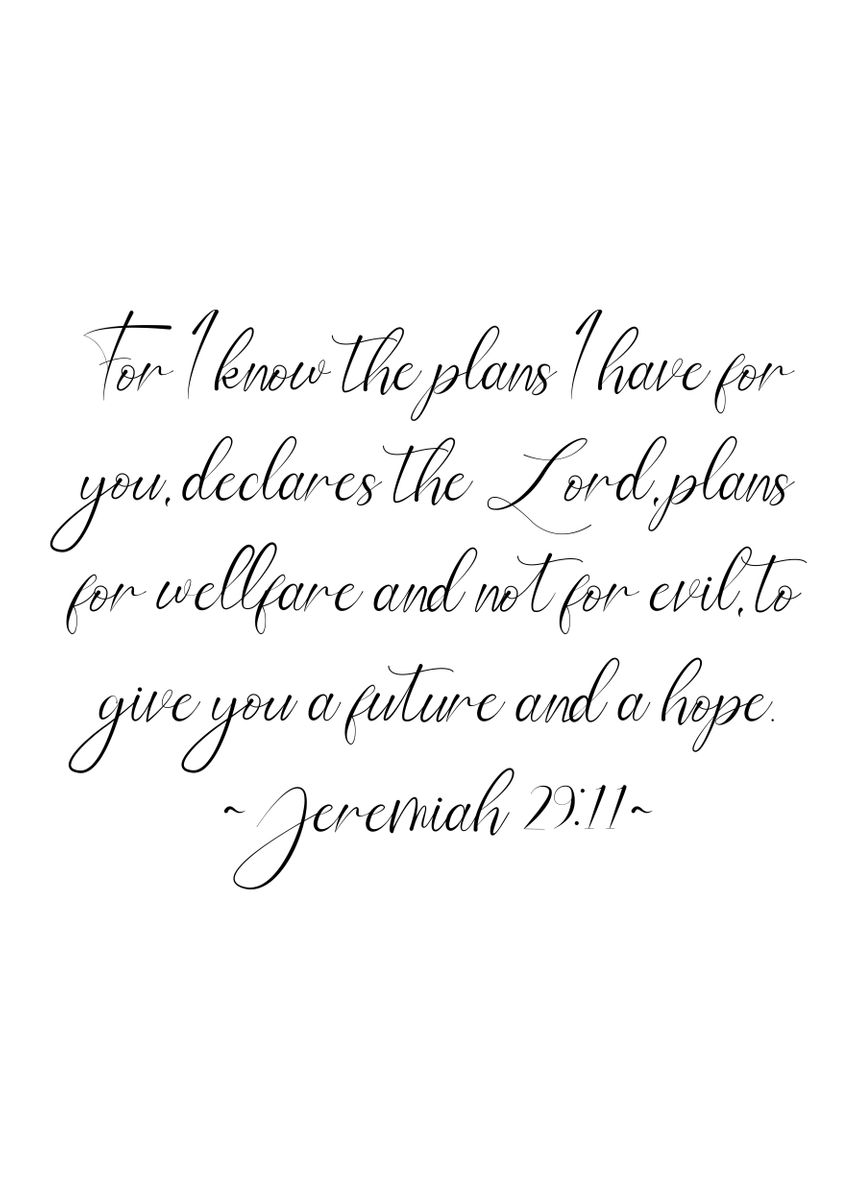 For I know the plans I have for
you, declares the Lord, plans
for wellfare and not for evil, to
give you a future and a hope.
~Jeremiah 29:11~